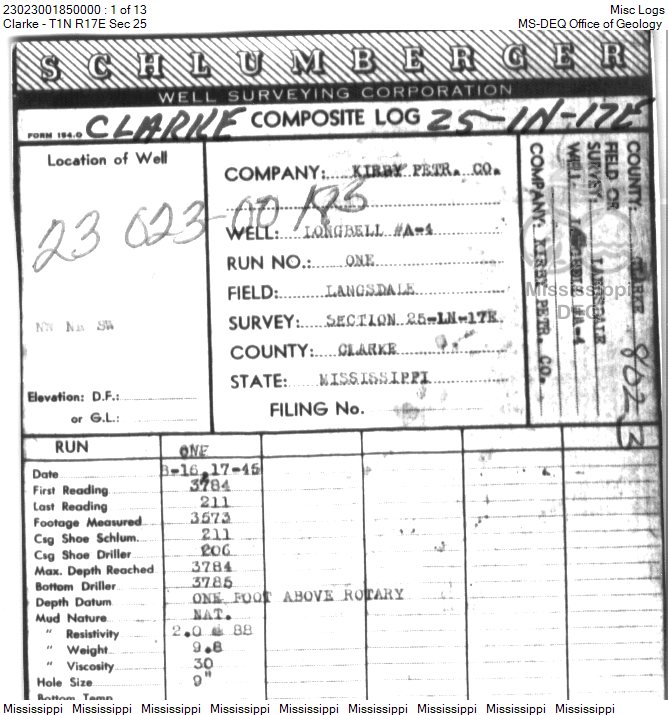 23023001850000 : 1 of 13 Misc Logs
Clarke - T1N R17E Sec 25 MS-DEQ Office of Geology
SCHLUMBERGER
WELL SURVEYING CORPORATION
FORM 184.G CLARKE COMPOSITE LOG 25-1N-17E
Location of Well
23 023-00 185
NW NE SW
Elevation: D.F.:
or G.L.:
COMPANY: KIRBY PETR. CO.
WELL: LONGBELL #A-4
RUN NO.: ONE
FIELD: LANGSDALE
SURVEY: SECTION 25-1N-17E
COUNTY: CLARKE
STATE: MISSISSIPPI
FILING No.
COUNTY: CLARKE
FIELD OR
SURVEY: LANGSDALE
WELL: #A-4
COMPANY: KIRBY PETR. CO.
Mississippi
DEQ
RUN ONE
Date 8-16,17-45
First Reading 3784
Last Reading 211
Footage Measured 3573
Csg Shoe Schlum. 211
Csg Shoe Driller 206
Max. Depth Reached 3784
Bottom Driller 3785
Depth Datum ONE FOOT ABOVE ROTARY
Mud Nature NAT.
" Resistivity 2.0 @ 88
" Weight 9.8
" Viscosity 30
Hole Size 9"
Bottom Temp
Mississippi Mississippi Mississippi Mississippi Mississippi Mississippi Mississippi Mississippi Mississippi